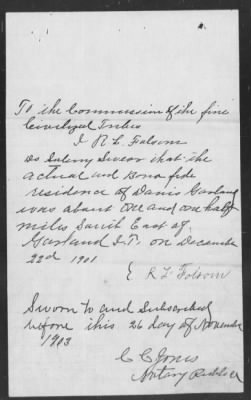 To the Commission of the five
Civilized Tribes
I R. L. Folsom
do Solemy Swear that the
actual and bona fide
residence of Davis Garland
was about one and one half
miles South East of
Garland I.T. on December
22d 1901
{ R L Folsom
Sworn to and Subscribed
before this 26 day of November
1903
C C Jones
Notary Public